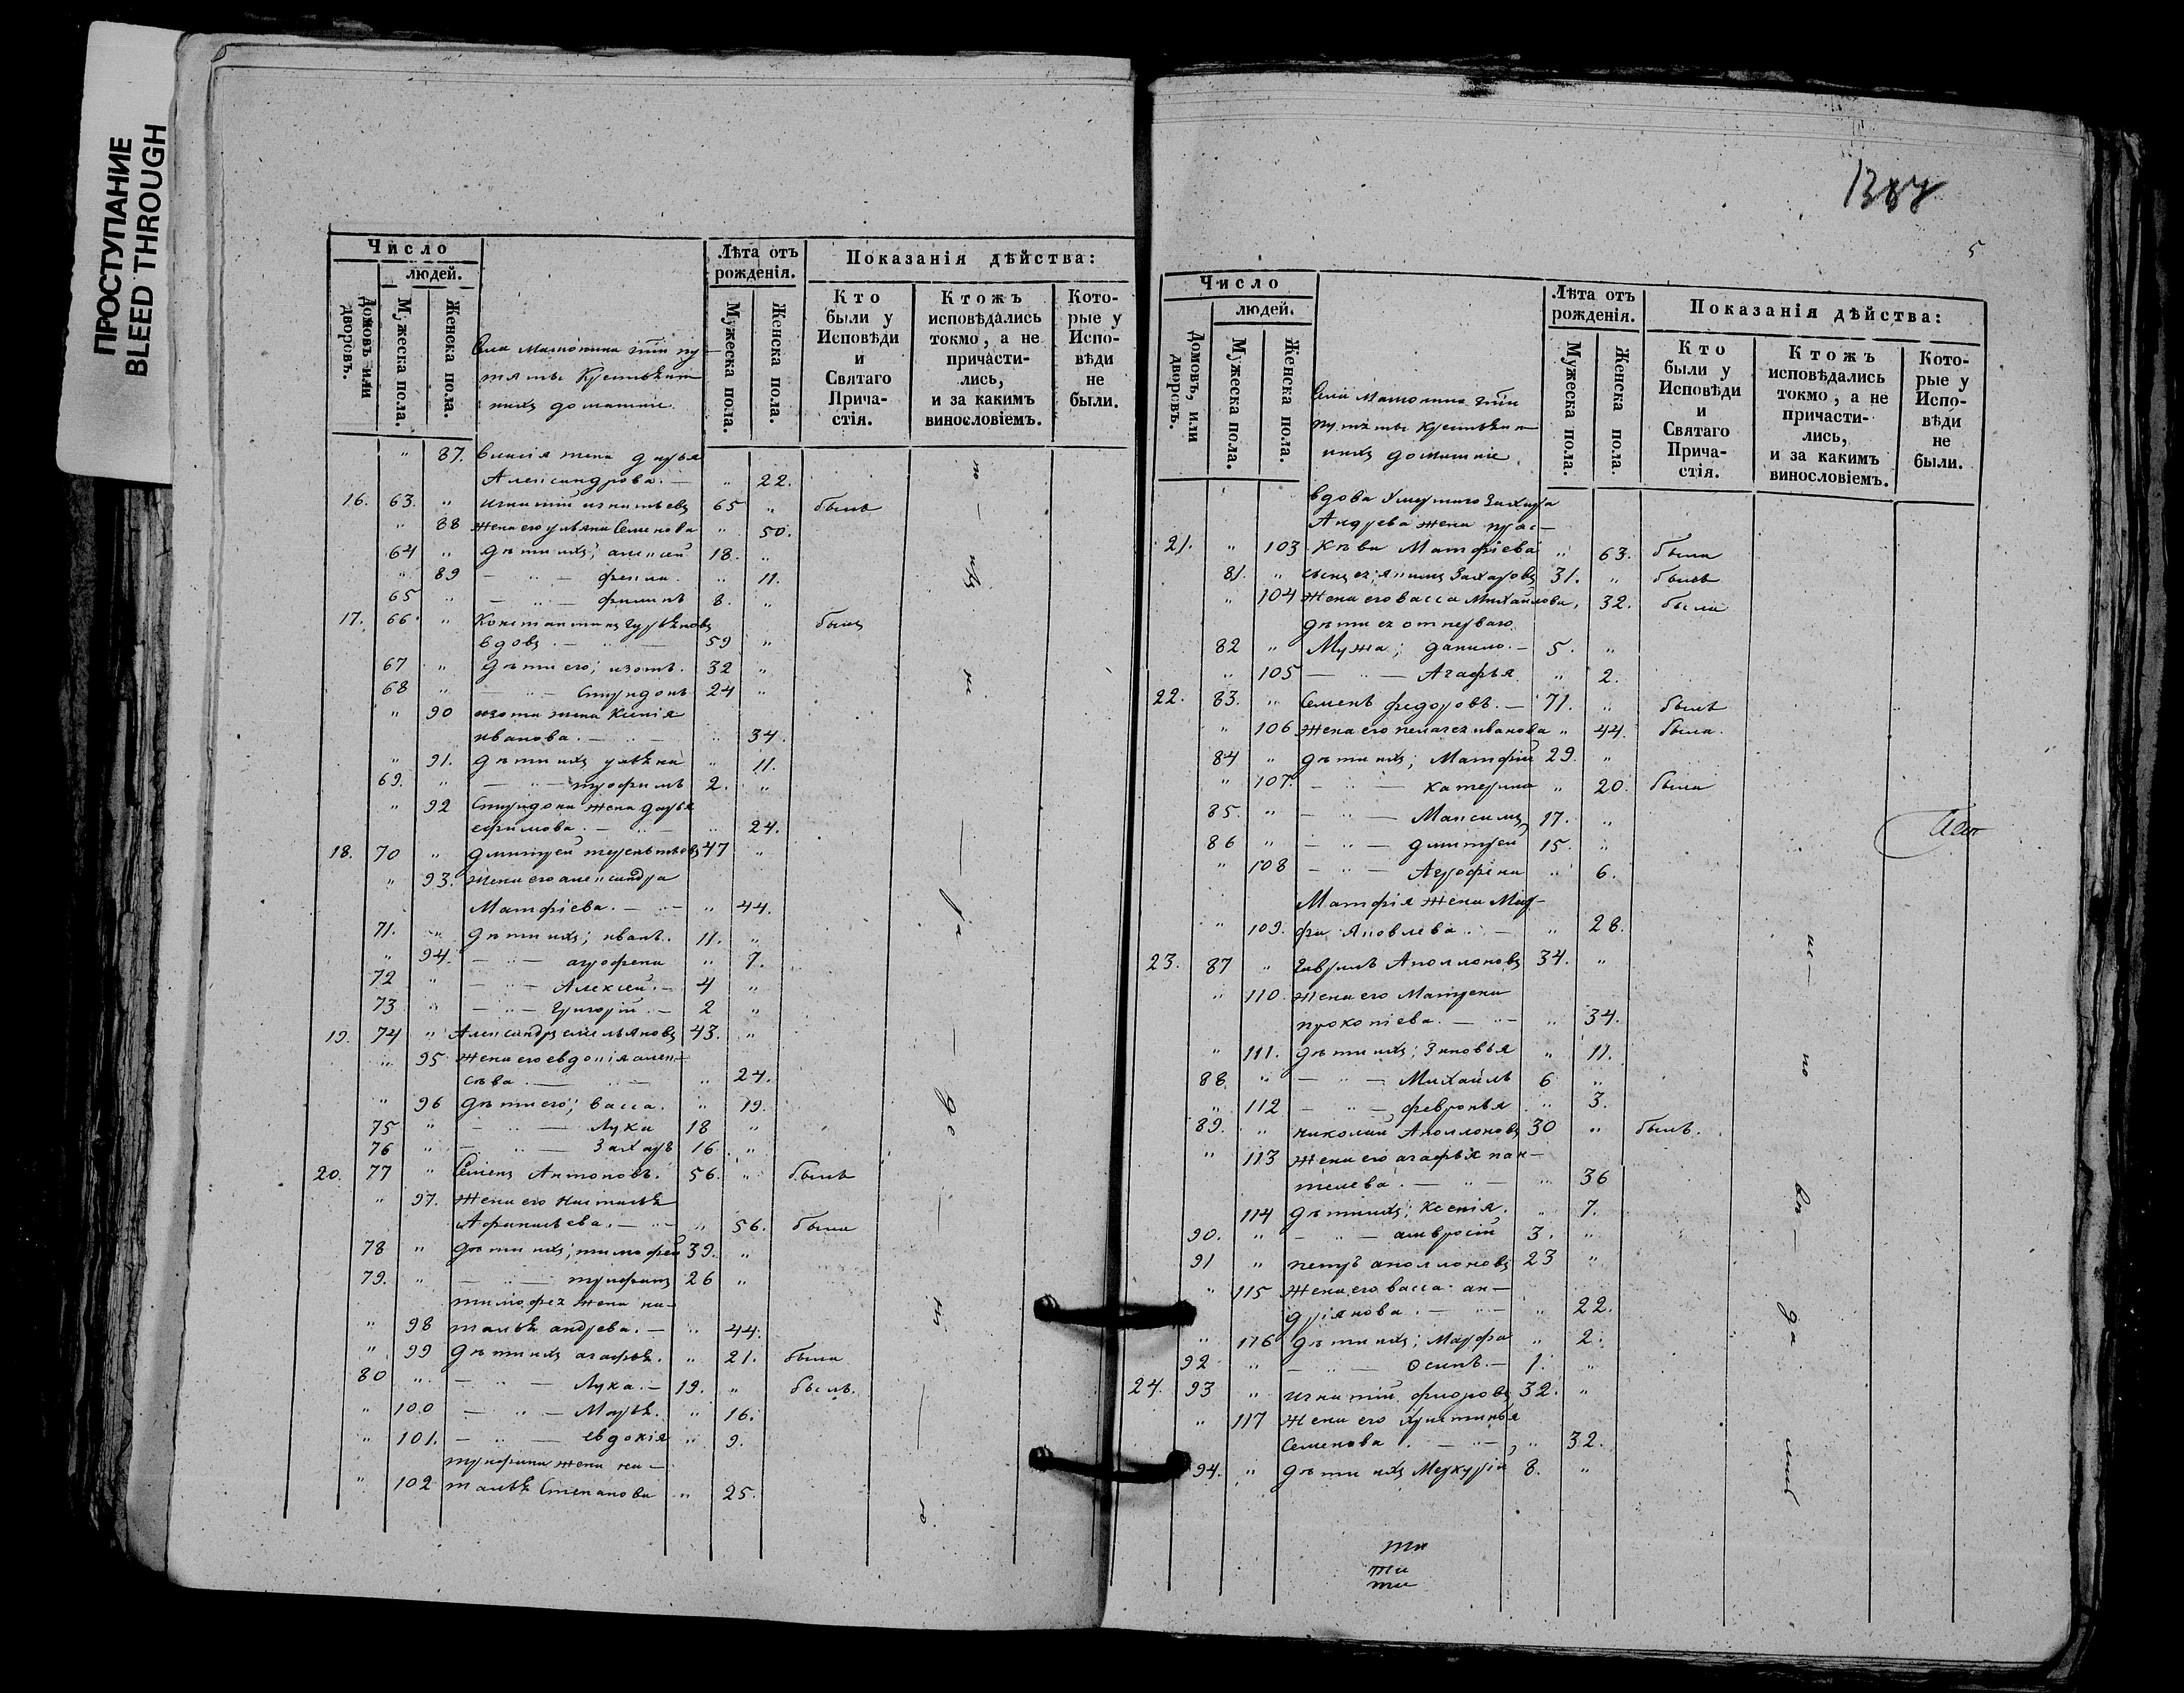 ПРОСТУПАНИЕ
BLEED THROUGH
Число
людей.
Домовъ или дворовъ.
Мужеска пола.
Женска пола.
Лѣта отъ рожденія.
Мужеска пола.
Женска пола.
Показанія дѣйства:
Кто были у Исповѣди и Святаго Причастія.
Ктожъ исповѣдались токмо, а не причастились, и за какимъ винословіемъ.
Которые у Исповѣди не были.
домашние
" 87. жена дарья
Александрова. — " 22.
16. 63. " игнатий игнатьевъ 65 " былъ
" 88 жена его ульяна Семенова " 50.
64 " дѣти ихъ; алексей 18. "
" 89 — " — фекла. " 11.
65 " — " — филипъ 8. "
17. 66 " Константинъ былъ
вдовъ. — " — 59 "
67 " дѣти его; изотъ. 32 "
68 " — " — Спиридонъ 24 "
" 90 изота жена Ксенія
иванова. — " — " 34.
" 91. дѣти ихъ ульяна " 11.
69. " — " — трофимъ 2. "
" 92 Спиридона жена дарья
ефимова. — " — " 24.
18. 70 " дмитрей терентьевъ 47 "
" 93. жена его александра
Матфіева. — " — " 44.
71. " дѣти ихъ; иванъ. 11. "
" 94. — " — агрофена " 7.
72 " — " — Алексей. — 4 "
73 " — " — Григорій. — 2 "
19. 74 " Александръ емельяновъ 43. "
" 95 жена его евдокія алек-
сѣева. — " — " 24.
" 96 дѣти его; васса. " 19.
75 " — " — Лука 18 "
76 " — " — Захаръ 16 "
20. 77 " Семенъ Антоновъ. 56. " былъ
" 97. жена его наталья
Афанасьева. — " — " 56. была
78 " дѣти ихъ; тимофей 39. "
79. " — " — трифанъ 26 "
тимофея жена на-
" 98 талья андрева. — " 44.
" 99 дѣти ихъ агафья. " 21. была
80 " — " — Лука. — 19. " былъ.
" 100 — " — Марья. " 16.
" 101. — " — евдокія " 9.
трифана жена на-
" 102 талья Степанова " 25.
5
Число
людей.
Домовъ, или дворовъ.
Мужеска пола.
Женска пола.
Лѣта отъ рожденія.
Мужеска пола.
Женска пола.
Показанія дѣйства:
Кто были у Исповѣди и Святаго Причастія.
Ктожъ исповѣдались токмо, а не причастились, и за какимъ винословіемъ.
Которые у Исповѣди не были.
домашние
вдова умершаго Захара
Андрева жена прас-
21. " 103 кѣва Матфіева " 63. была
81. " сынъ ея; Захаровъ 31. " былъ
" 104 жена его васса Михайлова, 32. была
дѣти ея от перваго
82 " Мужа; данило. — 5. "
" 105 — " — Агафья " 2.
22. 83. " Семенъ федоровъ. — 71. " былъ
" 106 жена его пелагея иванова " 44. была.
84 " дѣти ихъ; Матфій 29. "
" 107. — " — катерина " 20. была
85. " — " — Максимъ 17. "
86 " — " — дмитрей 15. "
" 108 — " — Агрофена " 6.
Матфія жена Мар-
" 109. фа Яковлева. — " 28.
23. 87 " Гаврилъ Аполлоновъ 34. "
" 110 жена его Матрена
прокопіева. — " — " 34.
" 111. дѣти ихъ; Зиновья " 11.
88. " — " — Михайлъ 6 "
" 112 — " — февронья " 3.
89. " николай Аполлоновъ 30 " былъ.
" 113 жена его агафья пан-
телева. — " — " 36
114 дѣти ихъ; Ксенія. " 7.
90. " — " — амвросій 3. "
91 " петръ аполлоновъ 23 "
" 115 жена его васса ан-
дріянова. — " — " 22.
" 116 дѣти ихъ; Марфа " 2.
92 " — " — осипъ. — 1. "
24. 93 " игнатій 32. "
" 117 жена его Христинья
Семенова. — " — " 32.
94. " дѣти ихъ Меркурій 8. "